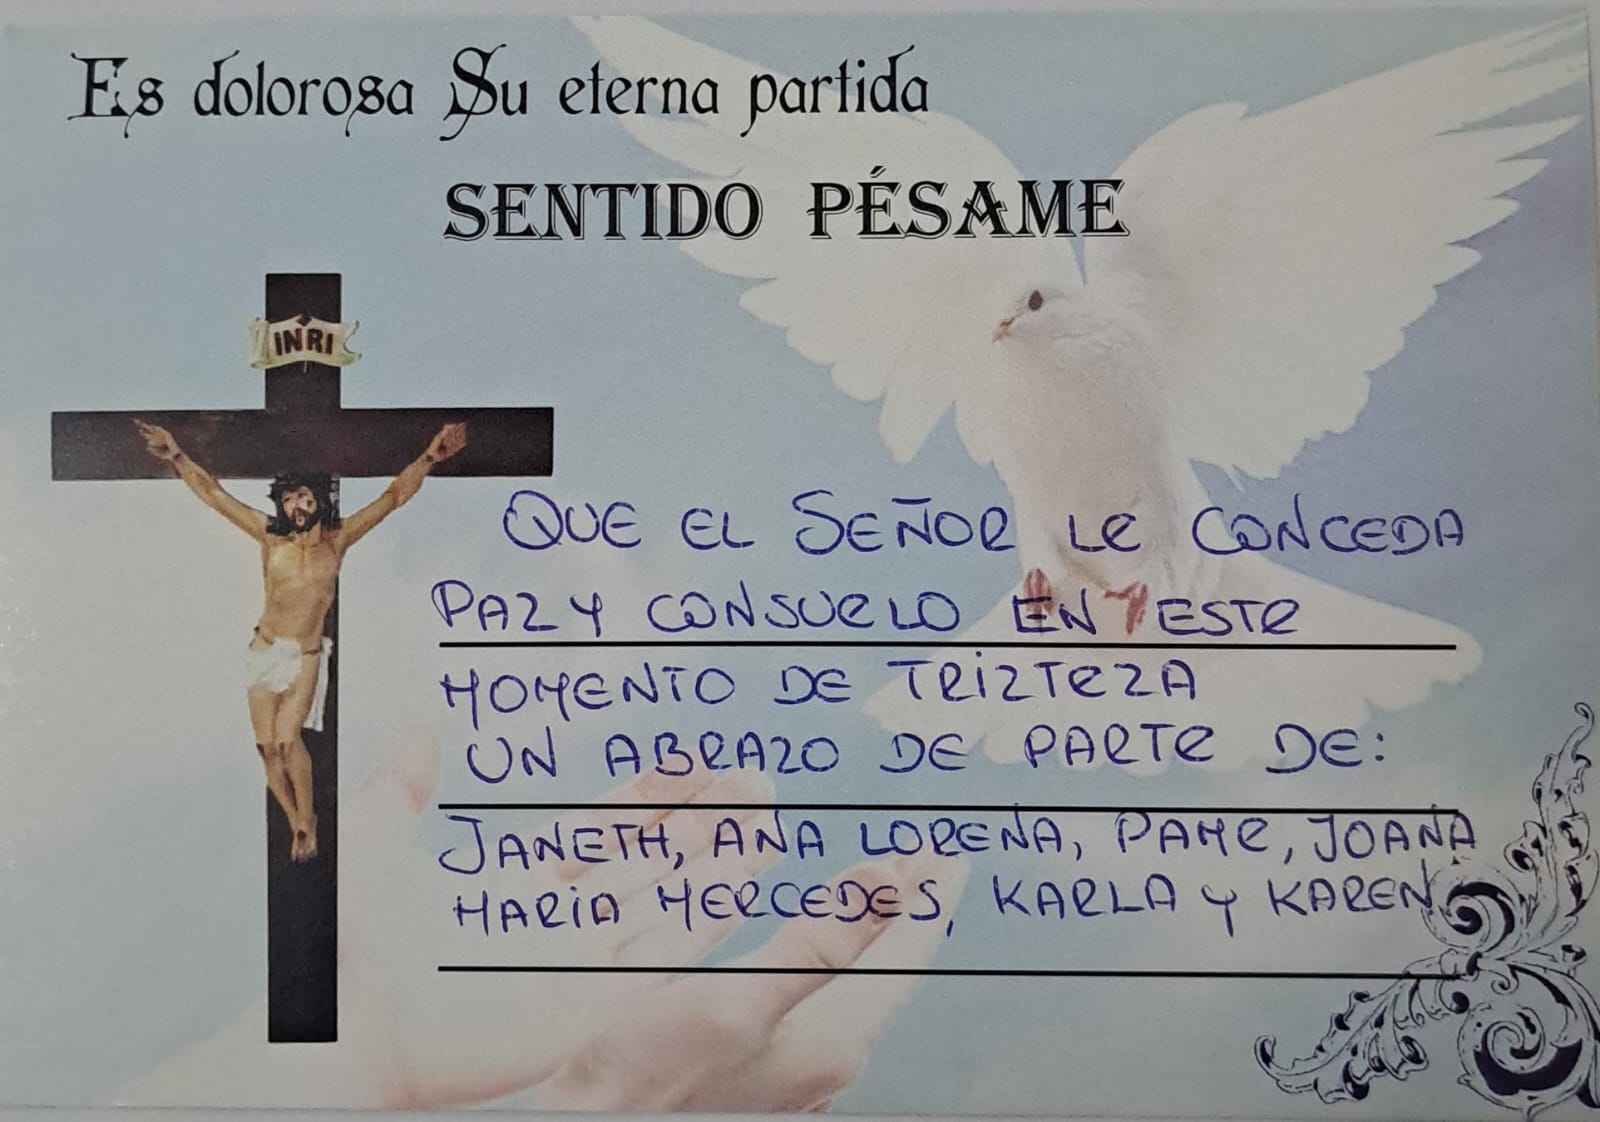 Es dolorosa Su eterna partida
SENTIDO PÉSAME
INRI
QUE EL SEÑOR LE CONCEDA
PAZ Y CONSUELO EN ESTE
MOMENTO DE TRIZTEZA
UN ABRAZO DE PARTE DE:
JANETH, ANA LORENA, PAME, JOANA
MARIA MERCEDES, KARLA Y KAREN